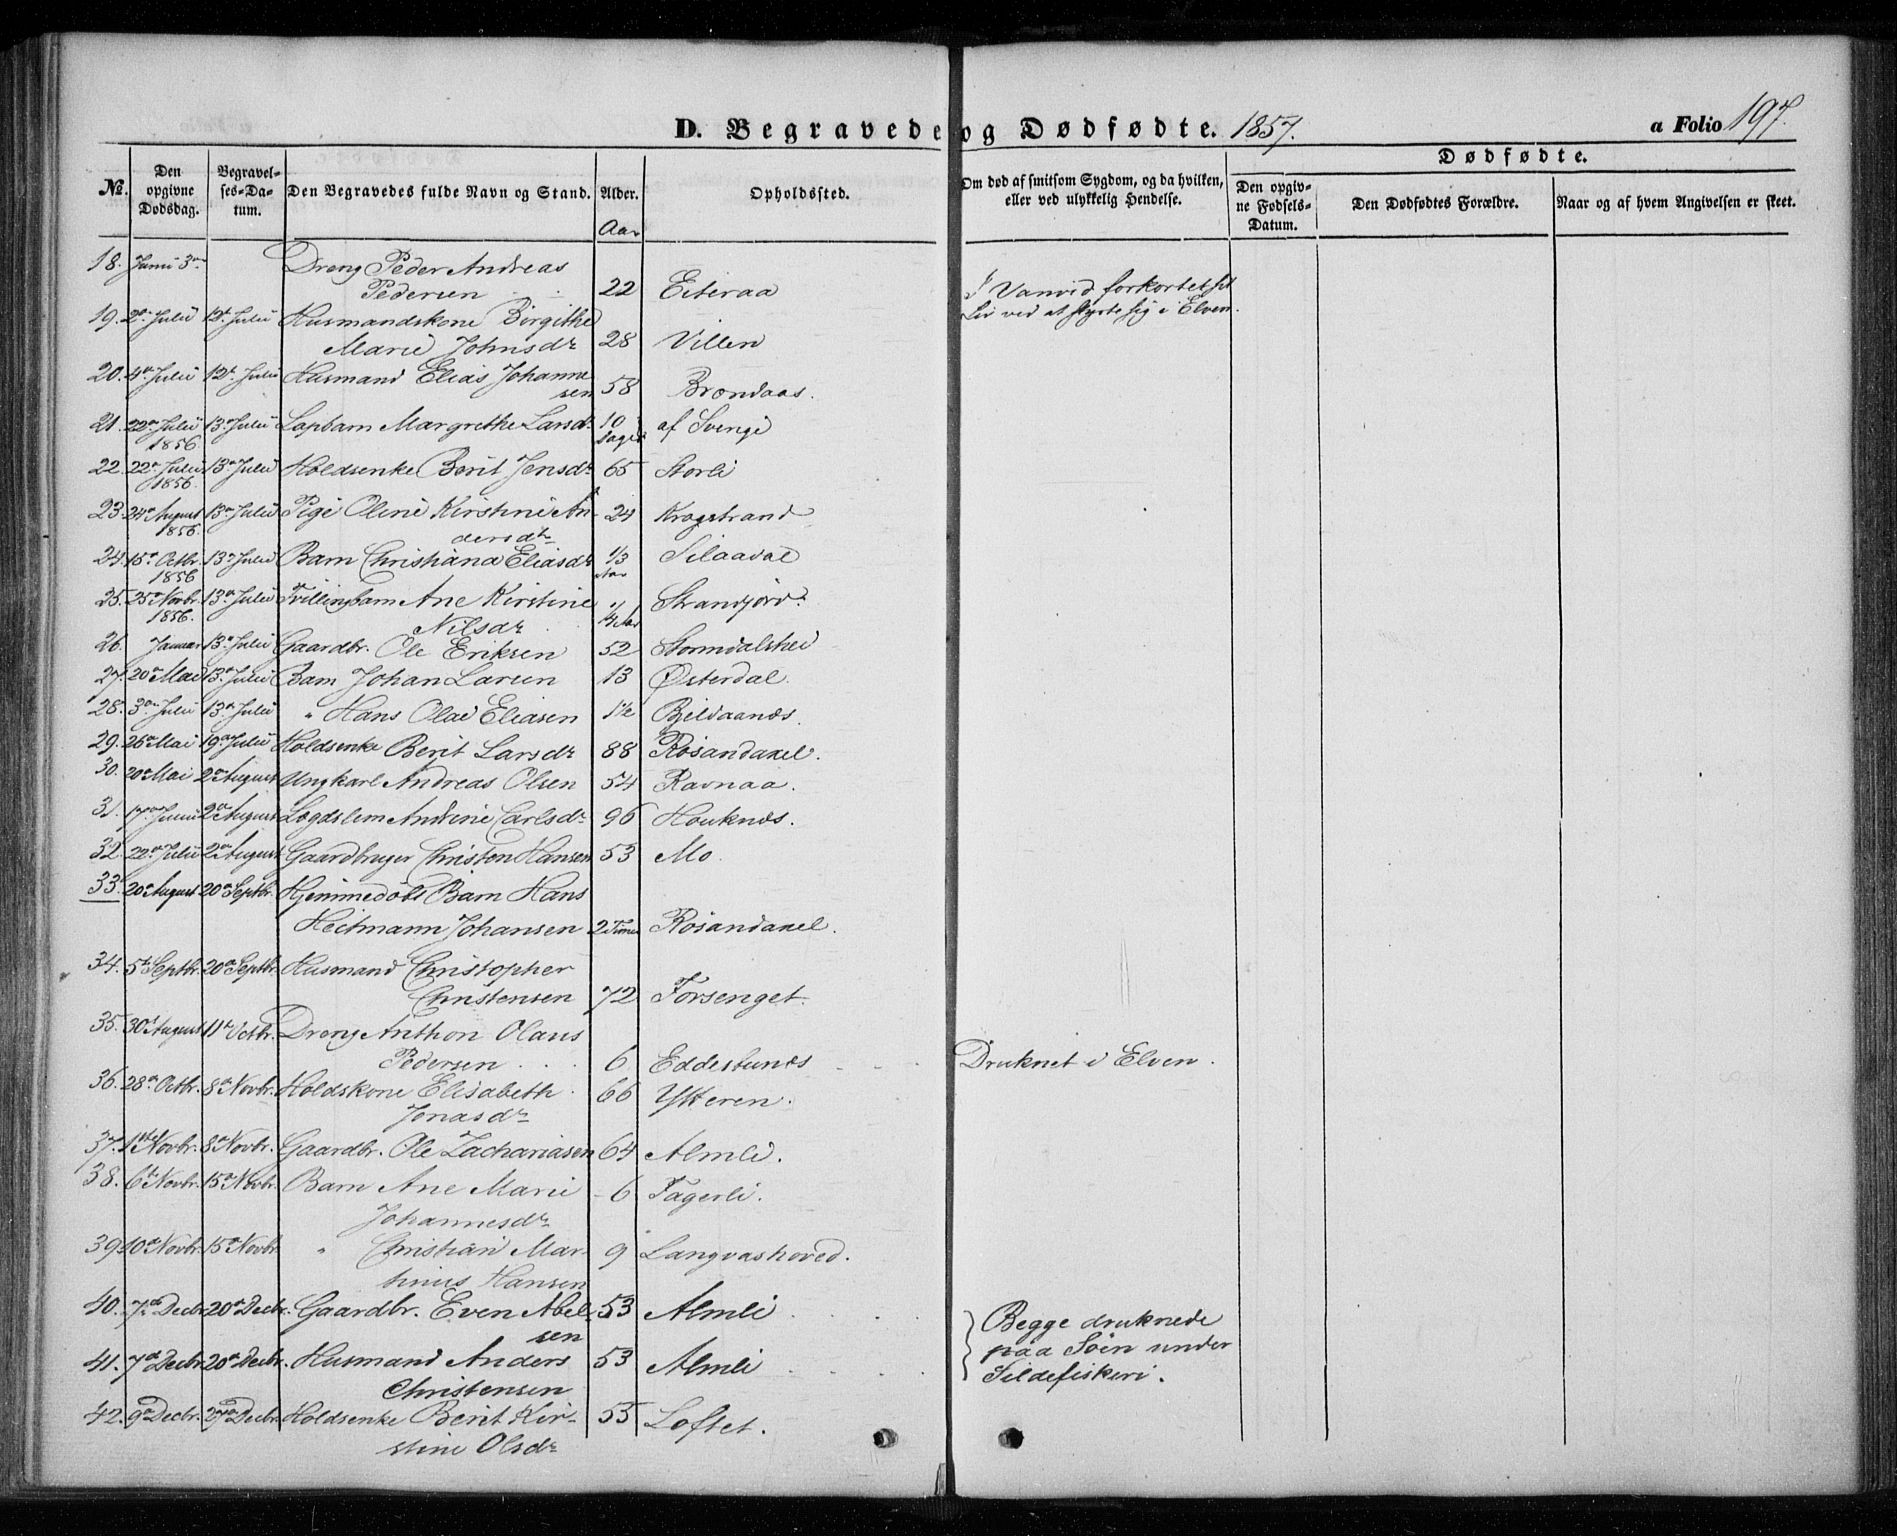 D. Begravede og Dødfødte. 1857. a Folio 197.
No. Den opgivne Dødsdag. Begravelses-Datum. Den Begravedes fulde Navn og Stand. Alder. Opholdssted. Om død af smitsom Sygdom, og da hvilken, eller ved ulykkelig Hendelse. Dødfødte. Den opgivne Fødsels-Datum. Den Dødfødtes Forældre. Naar og af hvem Angivelsen er skeet.
Aar
18. Juni 3die Dreng Peder Andreas
Pedersen 22 Eiteraa I Vanvid forkortet sit
Liv ved at styrte sig i Elven.
19. 2den Julii 12te Julii Husmandskone Birgithe
Marie Johnsdr 28 Villen
20. 4de Julii 12te Julii Husmand Elias Johanne
sen 58 Brændaas.
21. 22de Julii 13de Julii Lapbarn Margrethe Larsdr 10 af Sverige
1856 Dage
22. 22de Julii 13de Julii Holdsenke Berit Jensdr 65 Storli
1856.
23. 24de August 13de Julii Pige Oline Kirstine An- 24 Krogstrand
1856. dersdtr
24. 15de Octbr. 13de Julii Barn Christiana Eliasdr 1/3 Silaadal
1856 Aar
25. 25de Novbr. 13de Julii Tvillingbarn Ane Kirstine Strandjord.
1856. Nilsdr 1/4 Aar
26. Januar 13de Julii Gaardbr. Ole Eriksen 52 Stormdalshei
27. 20de Mai 13de Julii Barn Johan Larsen 13 Østerdal.
28. 3die Julii 13de Julii " Hans Olai Eliasen 1 1/2 Bjeldaanæs.
29. 26de Mai 19de Julii Holdsenke Berit Larsdr 88 Røsandaxel.
30. 20de Mai 2den August Ungkarl Andreas Olsen 54 Ravnaa.
31. 17de Junii 2den August Lægdslem Andrine Carlsdr 96 Houknæs.
32. 22de Julii 2den August Gaardbruger Christen Hansen 53 Mo.
33. 20de August 20de Septbr. Hjemmedøbt Barn Hans
Heitmann Johansen 2 Timer Røsandaxel.
34. 5te Septbr. 20de Septbr. Husmand Christopher
Christensen 72 Forsenget.
35. 30te August 11te Octbr. Dreng Anthon Olaus
Pedersen 6 Eddestunds Druknet i Elven.
36. 28de Octbr. 8de Novbr. Holdskone Elisabeth 66 Ytteren.
Jonasdr
37. 1ste Novbr. 8de Novbr. Gaardbr. Ole Zachariasen 64 Almli.
38. 6te Novbr. 15de Novbr. Barn Ane Marie 6 Fagerli.
Johannesdr
39. 10de Novbr. 15de Novbr " Christian Mar- 9 Langvashoved.
tinus Hansen
40. 7de Decbr. 20de Decbr. Gaardbr. Even Abel- 53 Almli Begge druknede
sen paa Søen under
41. 7de Decbr. 20de Decbr. Husmand Anders 53 Almli Sildefiskeri.
Christensen
42. 9de Decbr. 27de Decbr. Holdsenke Berit Kir- 55 Loftet.
stine Olsdr